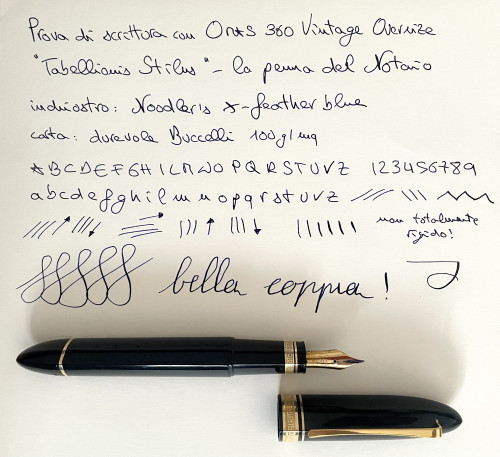 Prova di scrittura con Omas 360 Vintage Oversize
"Tabellionis Stilus" - la penna del Notaio
inchiostro: Noodler's X-feather blue
carta: durevole Buccelli 100g/mq
A B C D E F G H I L M N O P Q R S T U V Z 1 2 3 4 5 6 7 8 9
a b c d e f g h i l m n o p q r s t u v z
non totalmente
rigido!
bella coppia!